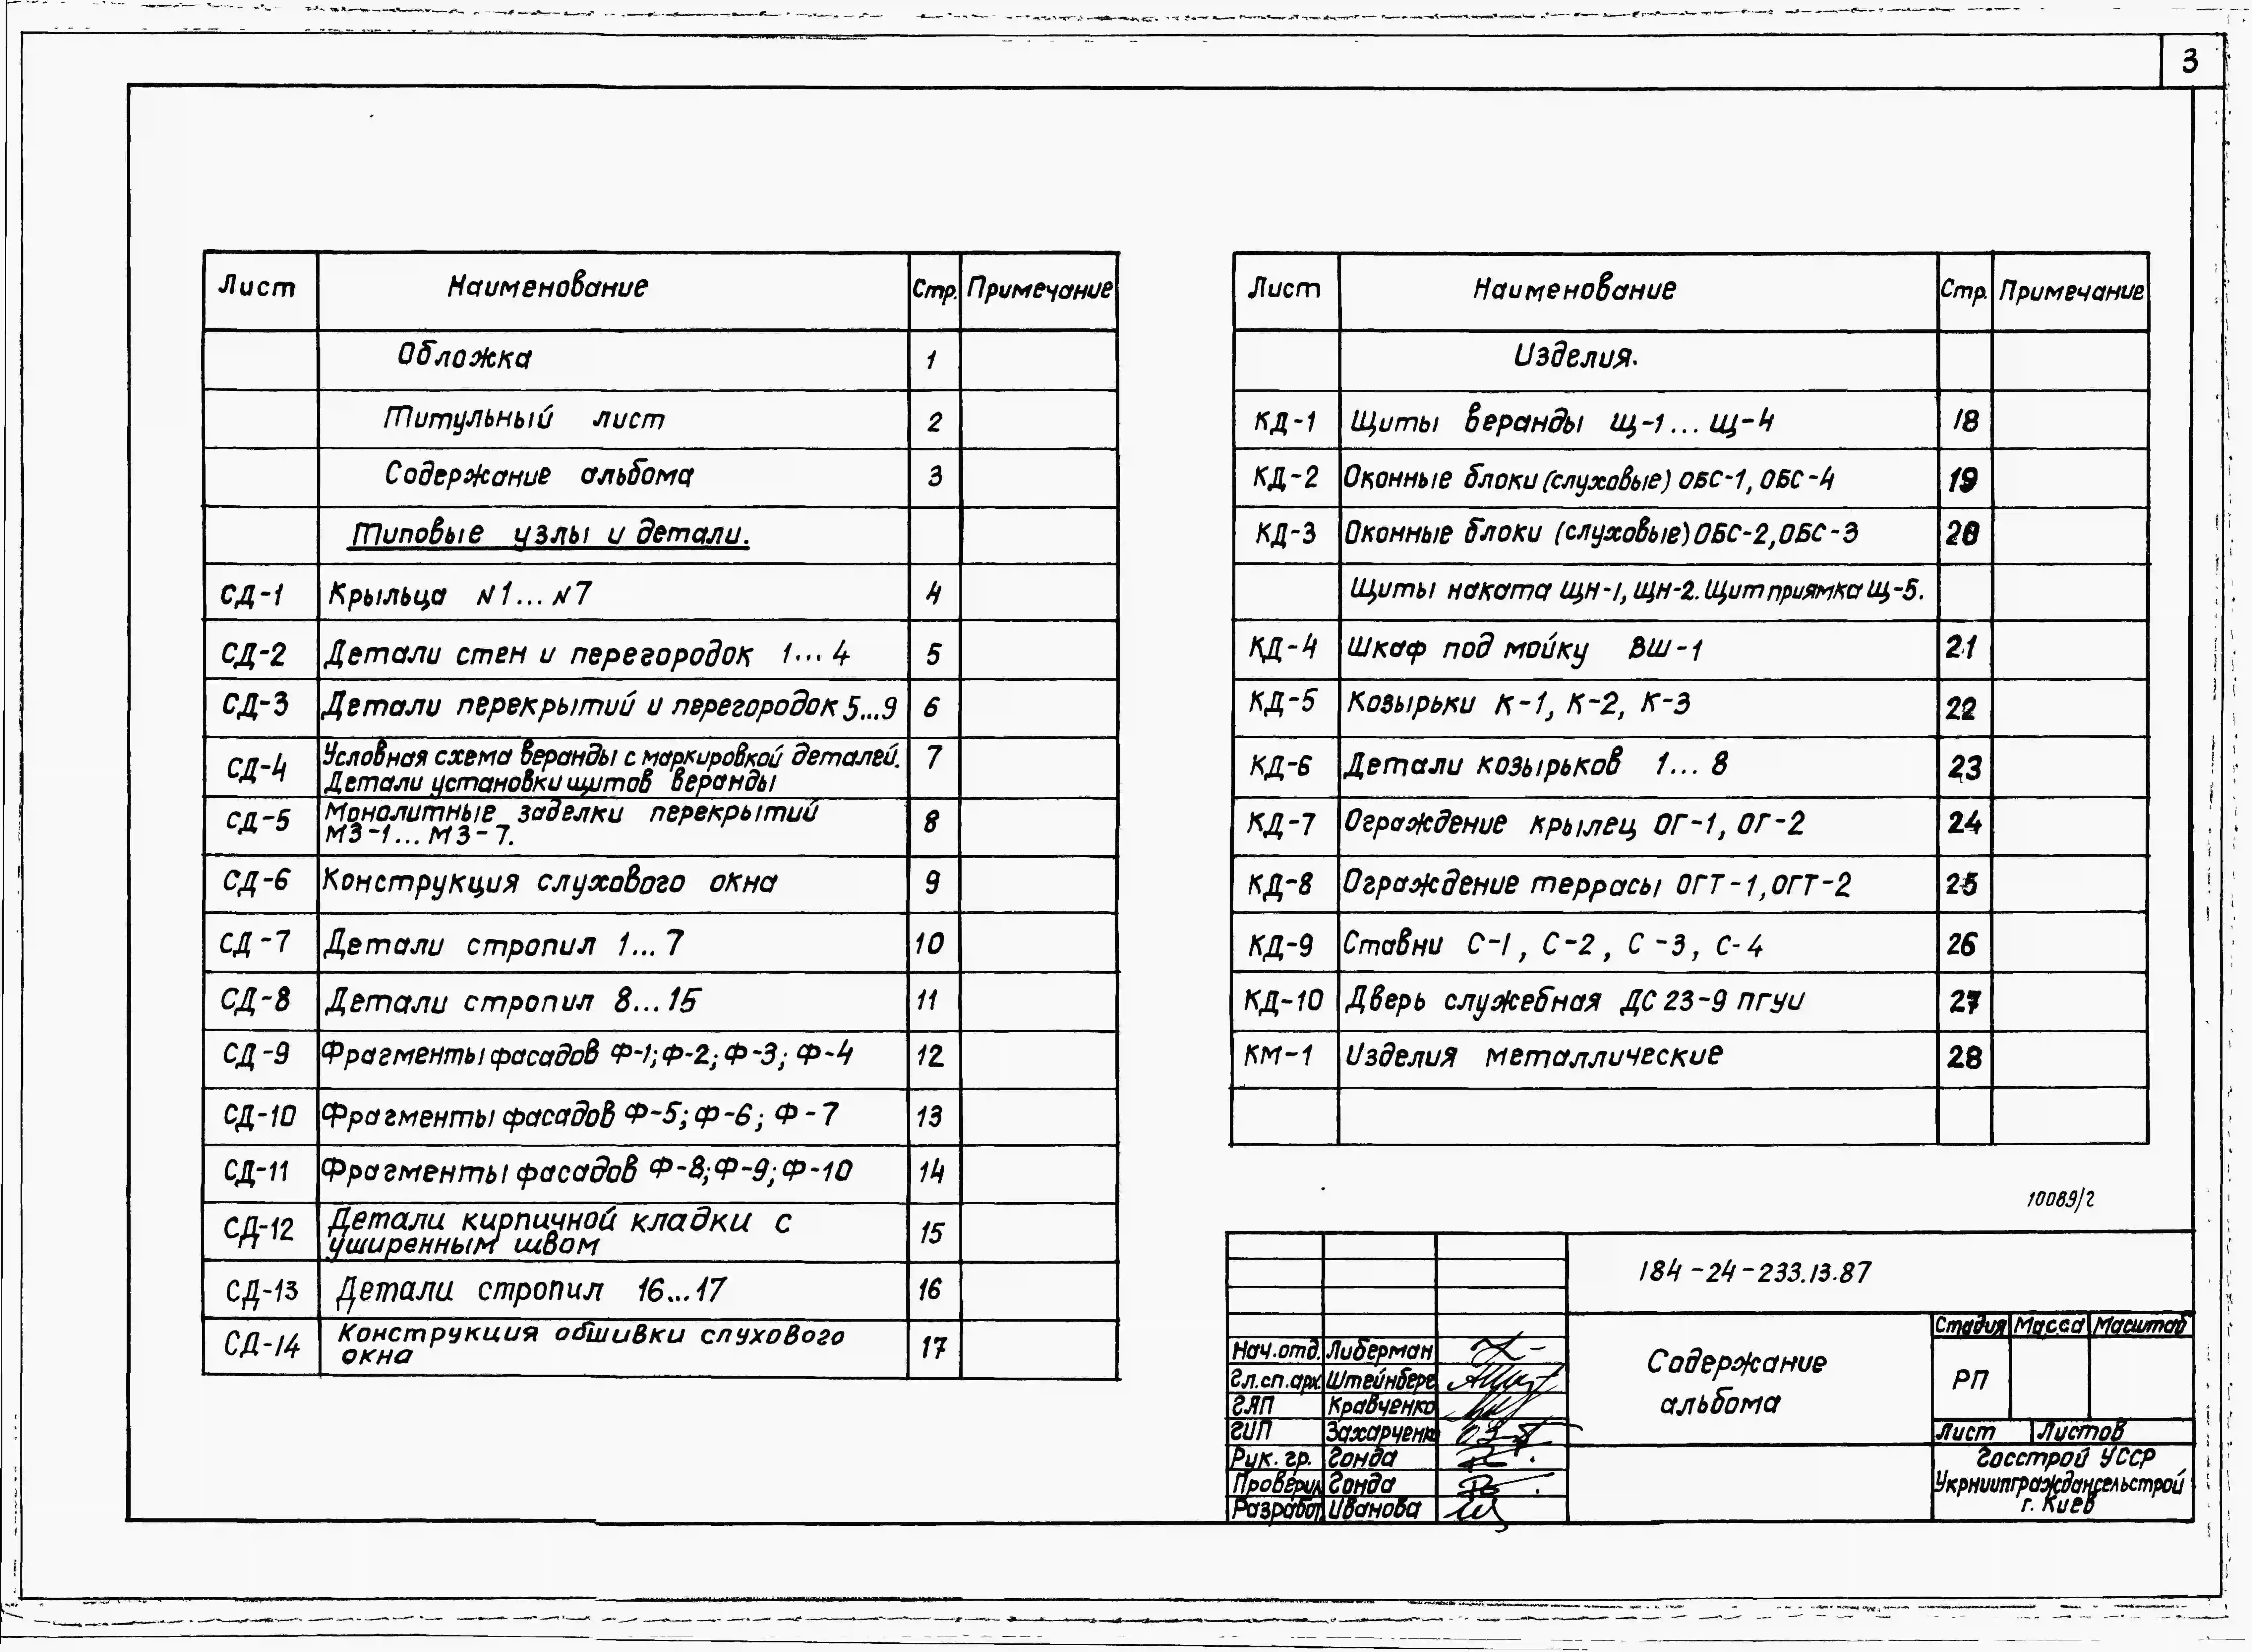 3
Лист Наименование Стр. Примечание
Обложка 1
Титульный лист 2
Содержание альбома 3
Типовые узлы и детали.
СД-1 Крыльца N1...N7 4
СД-2 Детали стен и перегородок 1...4 5
СД-3 Детали перекрытий и перегородок 5...9 6
СД-4 Условная схема веранды с маркировкой деталей. 7
Детали установки щитов веранды
СД-5 Монолитные заделки перекрытий 8
МЗ-1... МЗ-7.
СД-6 Конструкция слухового окна 9
СД-7 Детали стропил 1...7 10
СД-8 Детали стропил 8...15 11
СД-9 Фрагменты фасадов Ф-1; Ф-2; Ф-3; Ф-4 12
СД-10 Фрагменты фасадов Ф-5; Ф-6; Ф-7 13
СД-11 Фрагменты фасадов Ф-8; Ф-9; Ф-10 14
СД-12 Детали кирпичной кладки с 15
уширенным швом
СД-13 Детали стропил 16...17 16
СД-14 Конструкция обшивки слухового 17
окна
Лист Наименование Стр. Примечание
Изделия.
КД-1 Щиты веранды Щ-1... Щ-4 18
КД-2 Оконные блоки (слуховые) ОБС-1, ОБС-4 19
КД-3 Оконные блоки (слуховые) ОБС-2, ОБС-3 20
Щиты наката ЩН-1, ЩН-2. Щит приямка Щ-5.
КД-4 Шкаф под мойку ВШ-1 21
КД-5 Козырьки К-1, К-2, К-3 22
КД-6 Детали козырьков 1... 8 23
КД-7 Ограждение крылец ОГ-1, ОГ-2 24
КД-8 Ограждение террасы ОГТ-1, ОГТ-2 25
КД-9 Ставни С-1, С-2, С-3, С-4 26
КД-10 Дверь служебная ДС 23-9 пгуи 27
КМ-1 Изделия металлические 28
10089/2
184-24-233.13.87
Стадия Масса Масштаб
Нач.отд. Либерман
Гл.сп.арх. Штейнберг
ГАП Кравченко
ГИП Захарченко
Рук. гр. Гонда
Проверил Гонда
Разработ. Иванова
Содержание
альбома
РП
Лист Листов
Госстрой УССР
Укрниипграждансельстрой
г. Киев